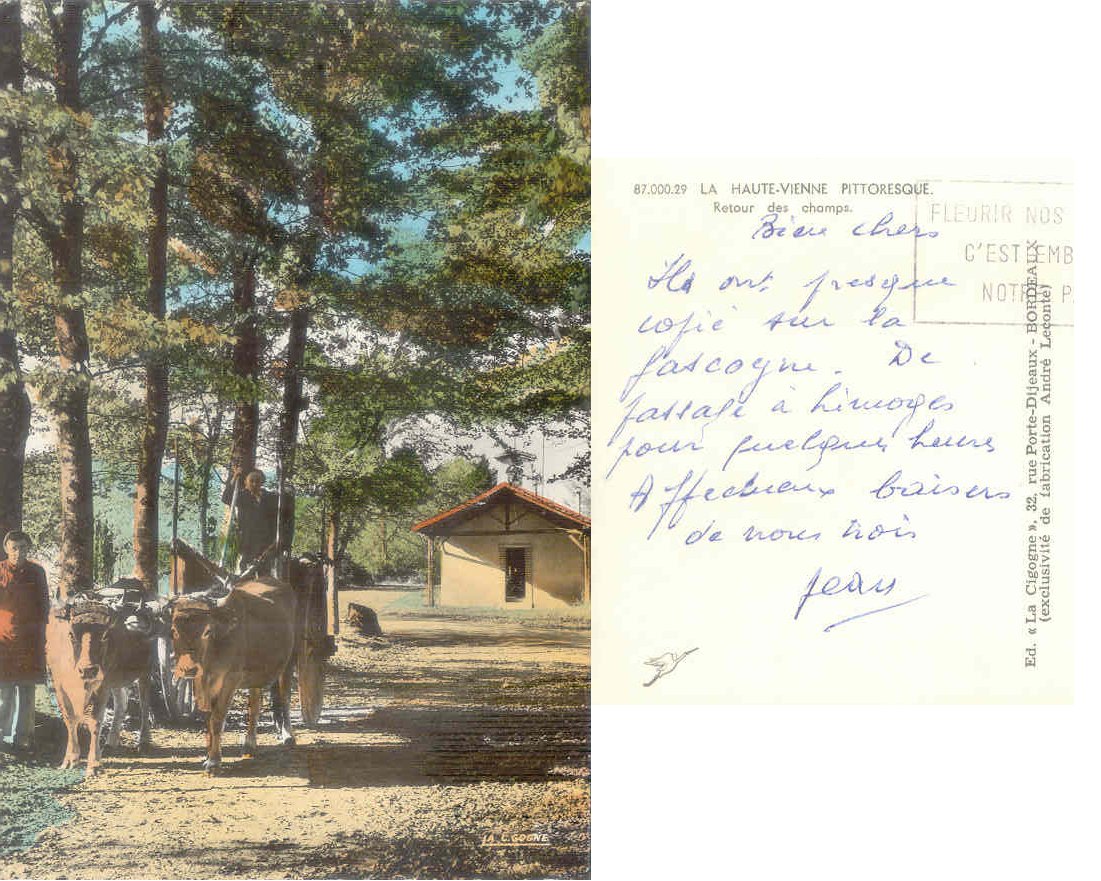 LA CIGOGNE
87.000.29 LA HAUTE-VIENNE PITTORESQUE.
Retour des champs.
FLEURIR NOS
C'EST EMB
NOTRE PA
Bien chers
Ils ont presque
copié sur la
gascogne. De
passage à Limoges
pour quelques heures
Affectueux baisers
de nous trois
Jean
Ed. « La Cigogne », 32, rue Porte-Dijeaux - BORDEAUX
(exclusivité de fabrication André Leconte)